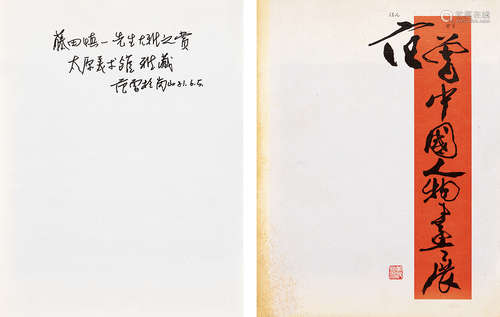 藤田慎一先生大雅之賞
太原美术館雅藏
范曾於岡山81.6.5.
はん
范曾中國人物畫展